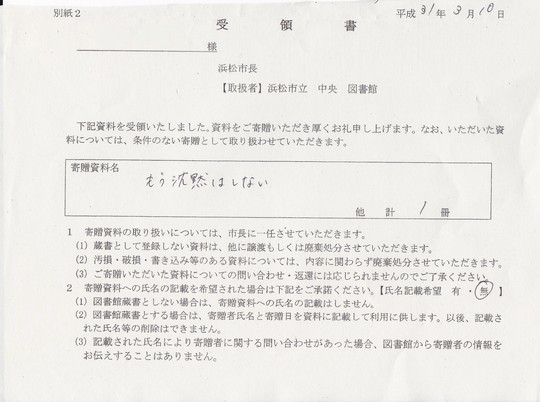 別紙2
平成 31 年 3 月 10 日
受領書
様
浜松市長
【取扱者】浜松市立 中央 図書館
下記資料を受領いたしました。資料をご寄贈いただき厚くお礼申し上げます。なお、いただいた資
料については、条件のない寄贈として取り扱わせていただきます。
寄贈資料名
もう沈黙はしない
他 計 1 冊
1 寄贈資料の取り扱いについては、市長に一任させていただきます。
(1) 蔵書として登録しない資料は、他に譲渡もしくは廃棄処分させていただきます。
(2) 汚損・破損・書き込み等のある資料については、内容に関わらず廃棄処分させていただきます。
(3) ご寄贈いただいた資料についての問い合わせ・返還には応じられませんのでご了承ください。
2 寄贈資料への氏名の記載を希望された場合は下記をご承諾ください。【氏名記載希望 有 ・ 無 】
(1) 図書館蔵書としない場合は、寄贈資料への氏名の記載はしません。
(2) 図書館蔵書とする場合は、寄贈者氏名と寄贈日を資料に記載して利用に供します。以後、記載され
た氏名等の削除はできません。
(3) 記載された氏名により寄贈者に関する問い合わせがあった場合、図書館から寄贈者の情報を
お伝えすることはありません。